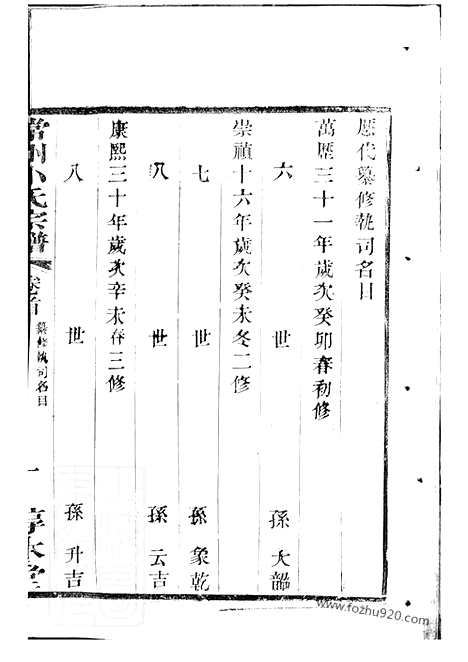 歷代纂修執司名目
萬歷三十一年歲次癸卯春初修
六世 孫大韶
崇禎十六年歲次癸未冬二修
七世 孫象乾
八世 孫云吉
康熙三十年歲次辛未春三修
八世 孫升吉
常州卜氏宗譜 卷首 纂修執司名目 一 敦本堂
www.fozhu920.com